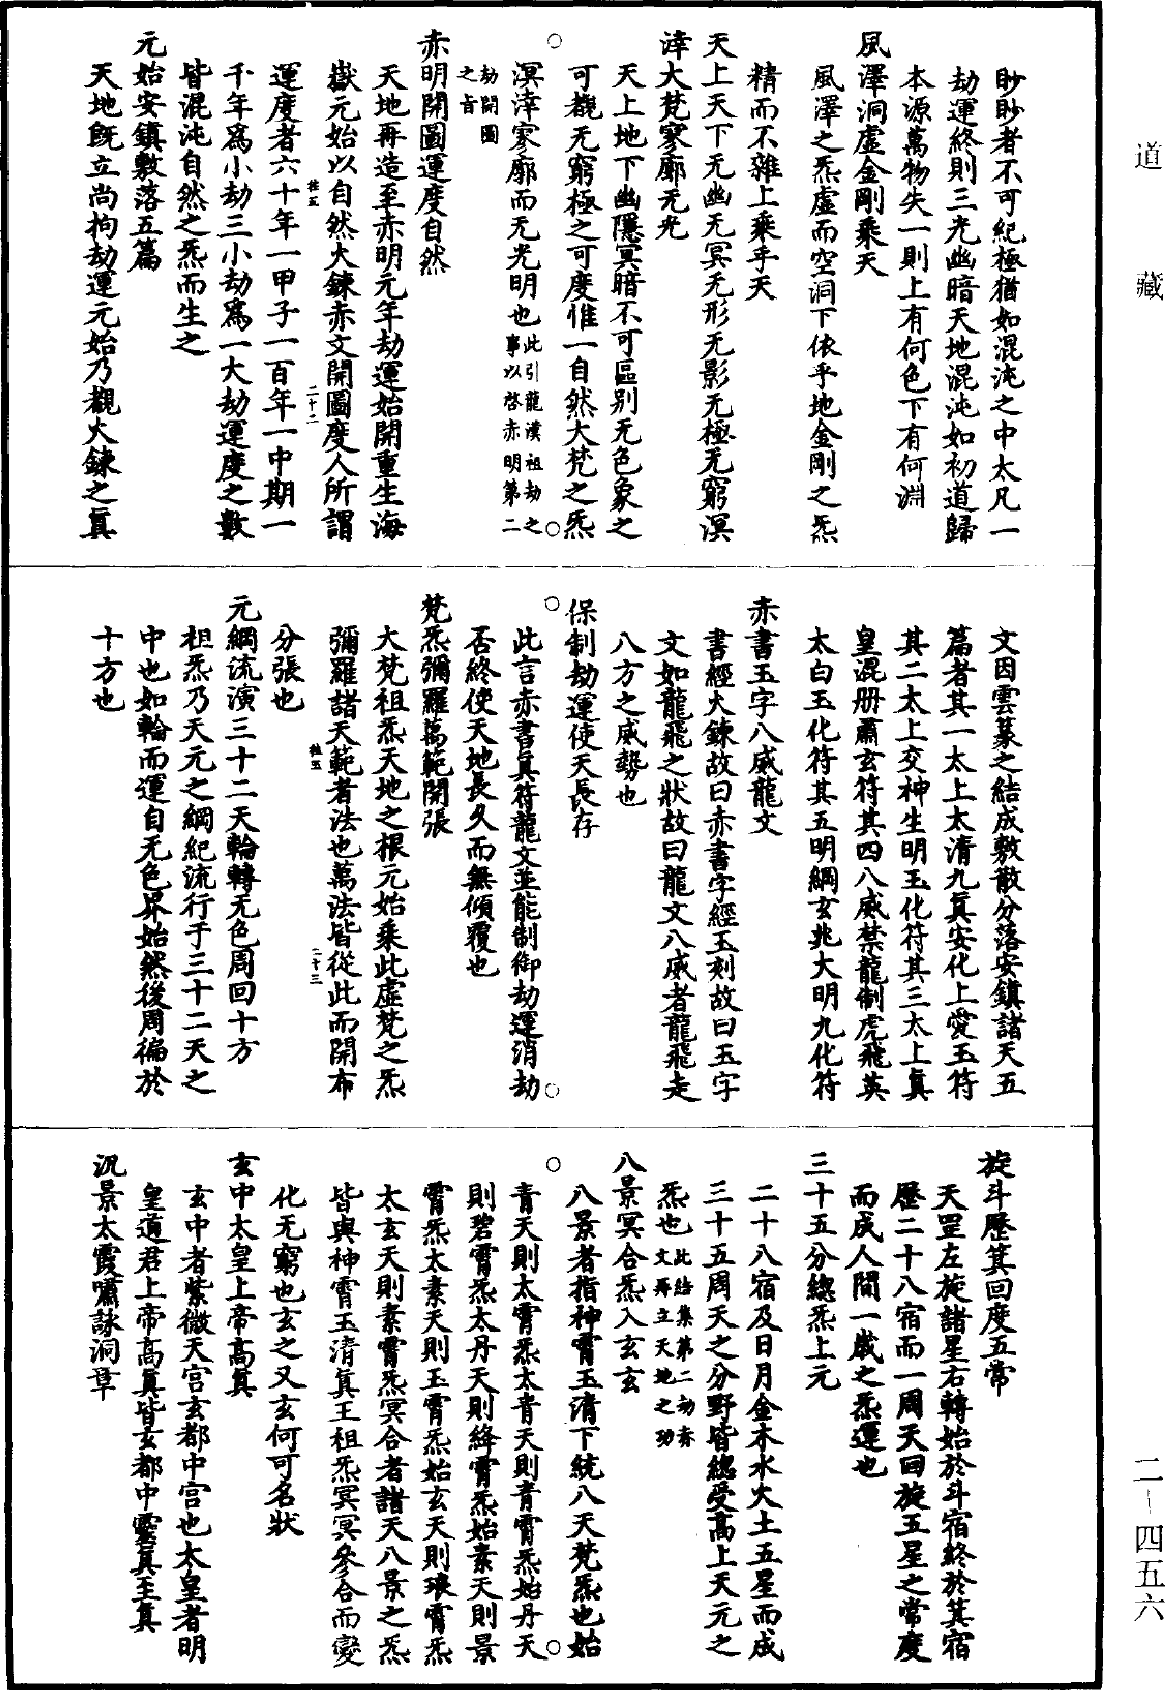 道藏
眇眇者不可紀極猶如混沌之中太凡一
劫運終則三光幽暗天地混沌如初道歸
本源萬物失一則上有何色下有何淵
風澤洞虛金剛乘天
風澤之炁虛而空洞下依乎地金剛之炁
精而不雜上乘乎天
天上天下无幽无冥无形无影无極无窮溟
涬大梵寥廓无光
天上地下幽隱冥暗不可區別无色象之
可觀无窮極之可度惟一自然大梵之炁
溟涬寥廓而无光明也此引龍漢祖劫之
事以啓赤明第二
劫開圖
之旨
赤明開圖運度自然
天地再造至赤明元年劫運始開重生海
嶽元始以自然火鍊赤文開圖度人所謂
運度者六十年一甲子一百年一中期一
千年爲小劫三小劫爲一大劫運度之數
皆混沌自然之炁而生之
元始安鎮敷落五篇
天地旣立尚拘劫運元始乃觀火鍊之眞
文因雲篆之結成敷散分落安鎮諸天五
篇者其一太上太清九眞安化上愛玉符
其二太上交神生明玉化符其三太上眞
皇混册肅玄符其四八威禁龍制虎飛英
太白玉化符其五明綱玄兆大明九化符
赤書玉字八威龍文
書經火鍊故曰赤書字經玉刻故曰玉字
文如龍飛之狀故曰龍文八威者龍飛走
八方之威勢也
保制劫運使天長存
此言赤書眞符龍文並能制御劫運消劫
否終使天地長久而無傾覆也
梵炁彌羅萬範開張
大梵祖炁天地之根元始乘此虛梵之炁
彌羅諸天範者法也萬法皆從此而開布
分張也
元綱流演三十二天輪轉无色周回十方
祖炁乃天元之綱紀流行于三十二天之
中也如輪而運自无色界始然後周徧於
十方也
旋斗歷箕回度五常
天罡左旋諸星右轉始於斗宿終於箕宿
歷二十八宿而一周天回旋五星之常度
而成人間一歲之炁運也
三十五分總炁上元
二十八宿及日月金木水火土五星而成
三十五周天之分野皆總受高上天元之
炁也此結集第二劫赤
文再立天地之功
八景冥合炁入玄玄
八景者指神霄玉清下統八天梵炁也始
青天則太霄炁太青天則青霄炁始丹天
則碧霄炁太丹天則絳霄炁始素天則景
霄炁太素天則玉霄炁始玄天則琅霄炁
太玄天則素霄炁冥合者諸天八景之炁
皆與神霄玉清眞王祖炁冥冥參合而變
化无窮也玄之又玄何可名狀
玄中太皇上帝高眞
玄中者紫微天宮玄都中宮也太皇者明
皇道君上帝高眞皆玄都中靈眞至眞
汎景太霞嘯詠洞章
二-四五六